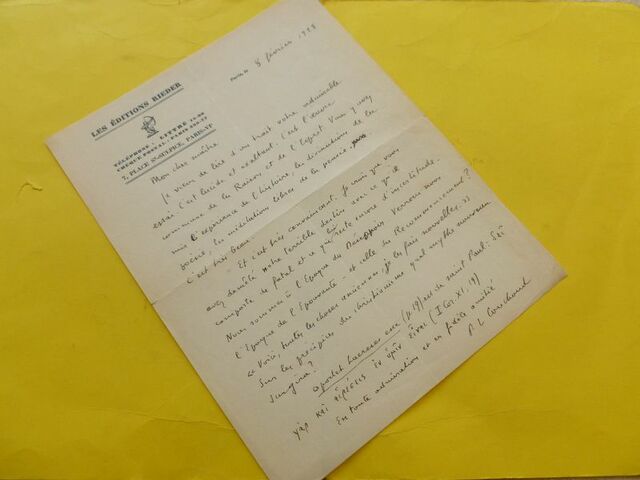 LES ÉDITIONS RIEDER
TÉLÉPHONE : LITTRÉ
CHEQUE POSTAL : PARIS
7, PLACE St-SULPICE, PARIS-VIe
Paris, le 8 février 1928
Mon cher maître
Je viens de lire d'un trait votre admirable
essai. C'est lucide et exaltant. C'est l'œuvre
commune de la Raison et de l'Esprit. Vous y avez
mis l'expérience de l'histoire, les divinations de la
poésie, les modulations libres de la pensée
C'est très beau.
Et c'est très convaincant. Je crois que vous
avez démêlé notre terrible destin avec ce qu'il
comporte de fatal et ce qui reste encore d'incertitude.
Nous sommes à l'Époque du Désespoir. Verrons-nous
l'Époque de l'Épouvante - et celle du Recommencement ?
« Voici, toutes les choses anciennes, je les fais nouvelles. »
Sur les précipices du christianisme quel mythe nouveau
surgira ?
oportet haereses esse (p. 19) est de saint Paul : Δεῖ
γὰρ καὶ αἱρέσεις ἐν ὑμῖν εἶναι (I Cor. XI, 19)
En toute admiration et en fidèle amitié
P. L. Couchoud